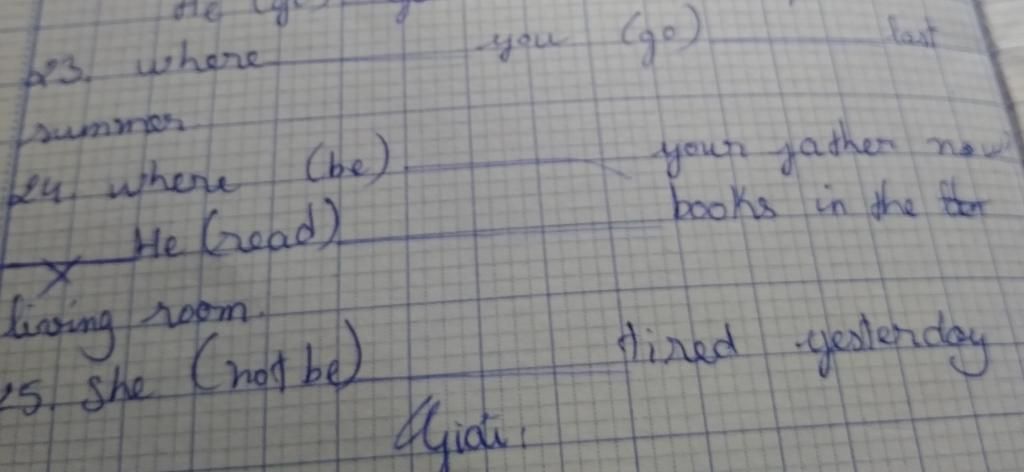 He
23. where you (go) last
summer
24. where (be) your father now
He (read) books in the
living room.
25 she (not be) tired yesterday